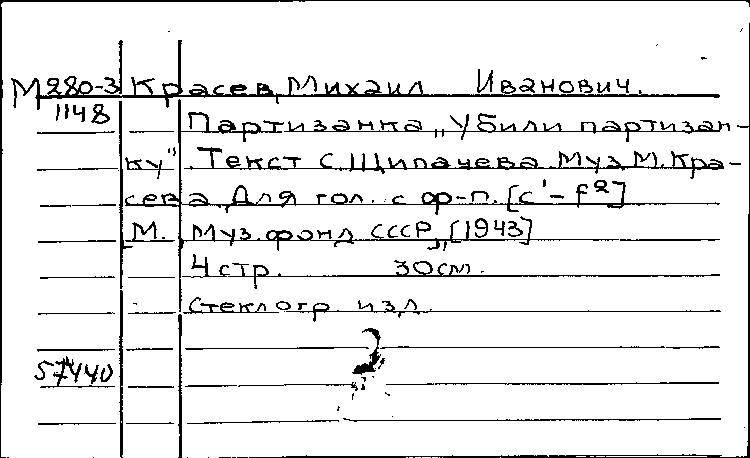 М 280-3 Красев, Михаил Иванович.
1148
Партизанка „Убили партизан-
ку". Текст С. Щипачева. Муз. М. Кра-
сева. Для гол. с ф-п. [c'-f²]
М. Муз. фонд СССР, [1943]
4 стр. 30 см.
Стеклогр. изд.
57440